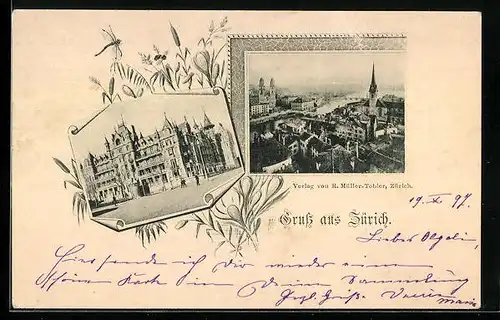 Verlag von H. Müller-Tobler, Zürich.
Gruß aus Zürich.
19.X.97.
Liebes
Hier sende ich Dir wieder eine
schöne Karte in Deine Sammlung
Gruß.